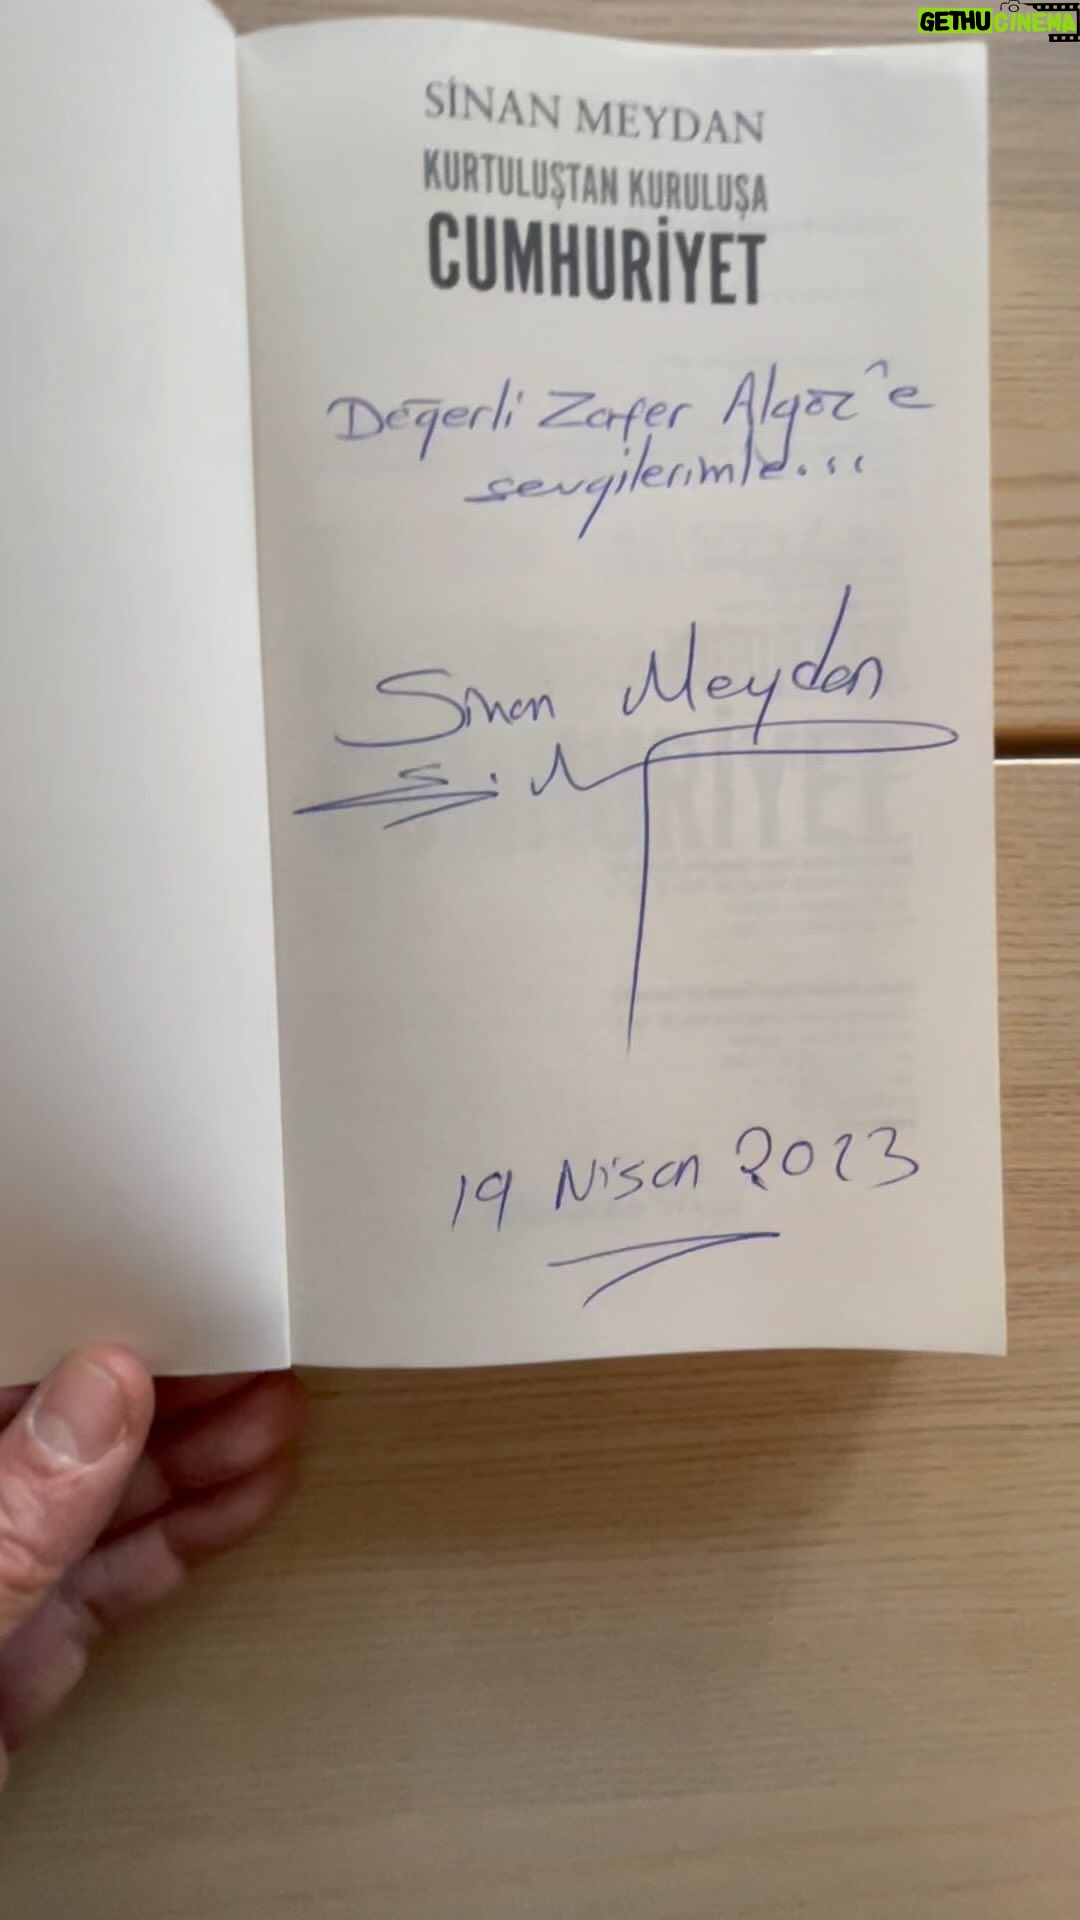 GETHUCINEMA
SİNAN MEYDAN
KURTULUŞTAN KURULUŞA
CUMHURİYET
Değerli Zafer Algöz'e
sevgilerimle...
Sinan Meydan
19 Nisan 2023